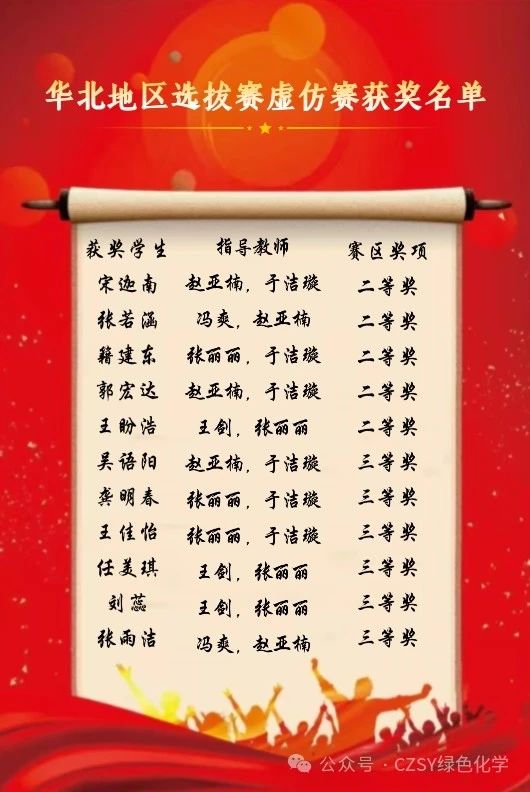 华北地区选拔赛虚仿赛获奖名单
获奖学生 指导教师 赛区奖项
宋迦南 赵亚楠，于洁璇 二等奖
张若涵 冯爽，赵亚楠 二等奖
籍建东 张丽丽，于洁璇 二等奖
郭宏达 赵亚楠，于洁璇 二等奖
王盼浩 王剑，张丽丽 二等奖
吴语阳 赵亚楠，于洁璇 三等奖
龚明春 张丽丽，于洁璇 三等奖
王佳怡 张丽丽，于洁璇 三等奖
任美琪 王剑，张丽丽 三等奖
刘蕊 王剑，张丽丽 三等奖
张雨洁 冯爽，赵亚楠 三等奖
公众号·CZSY绿色化学